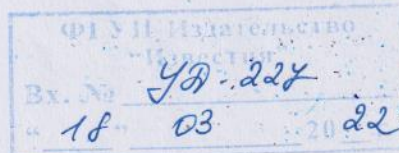 ФГУП Издательство
"Известия"
Вх. № УД-227
"18" 03 2022